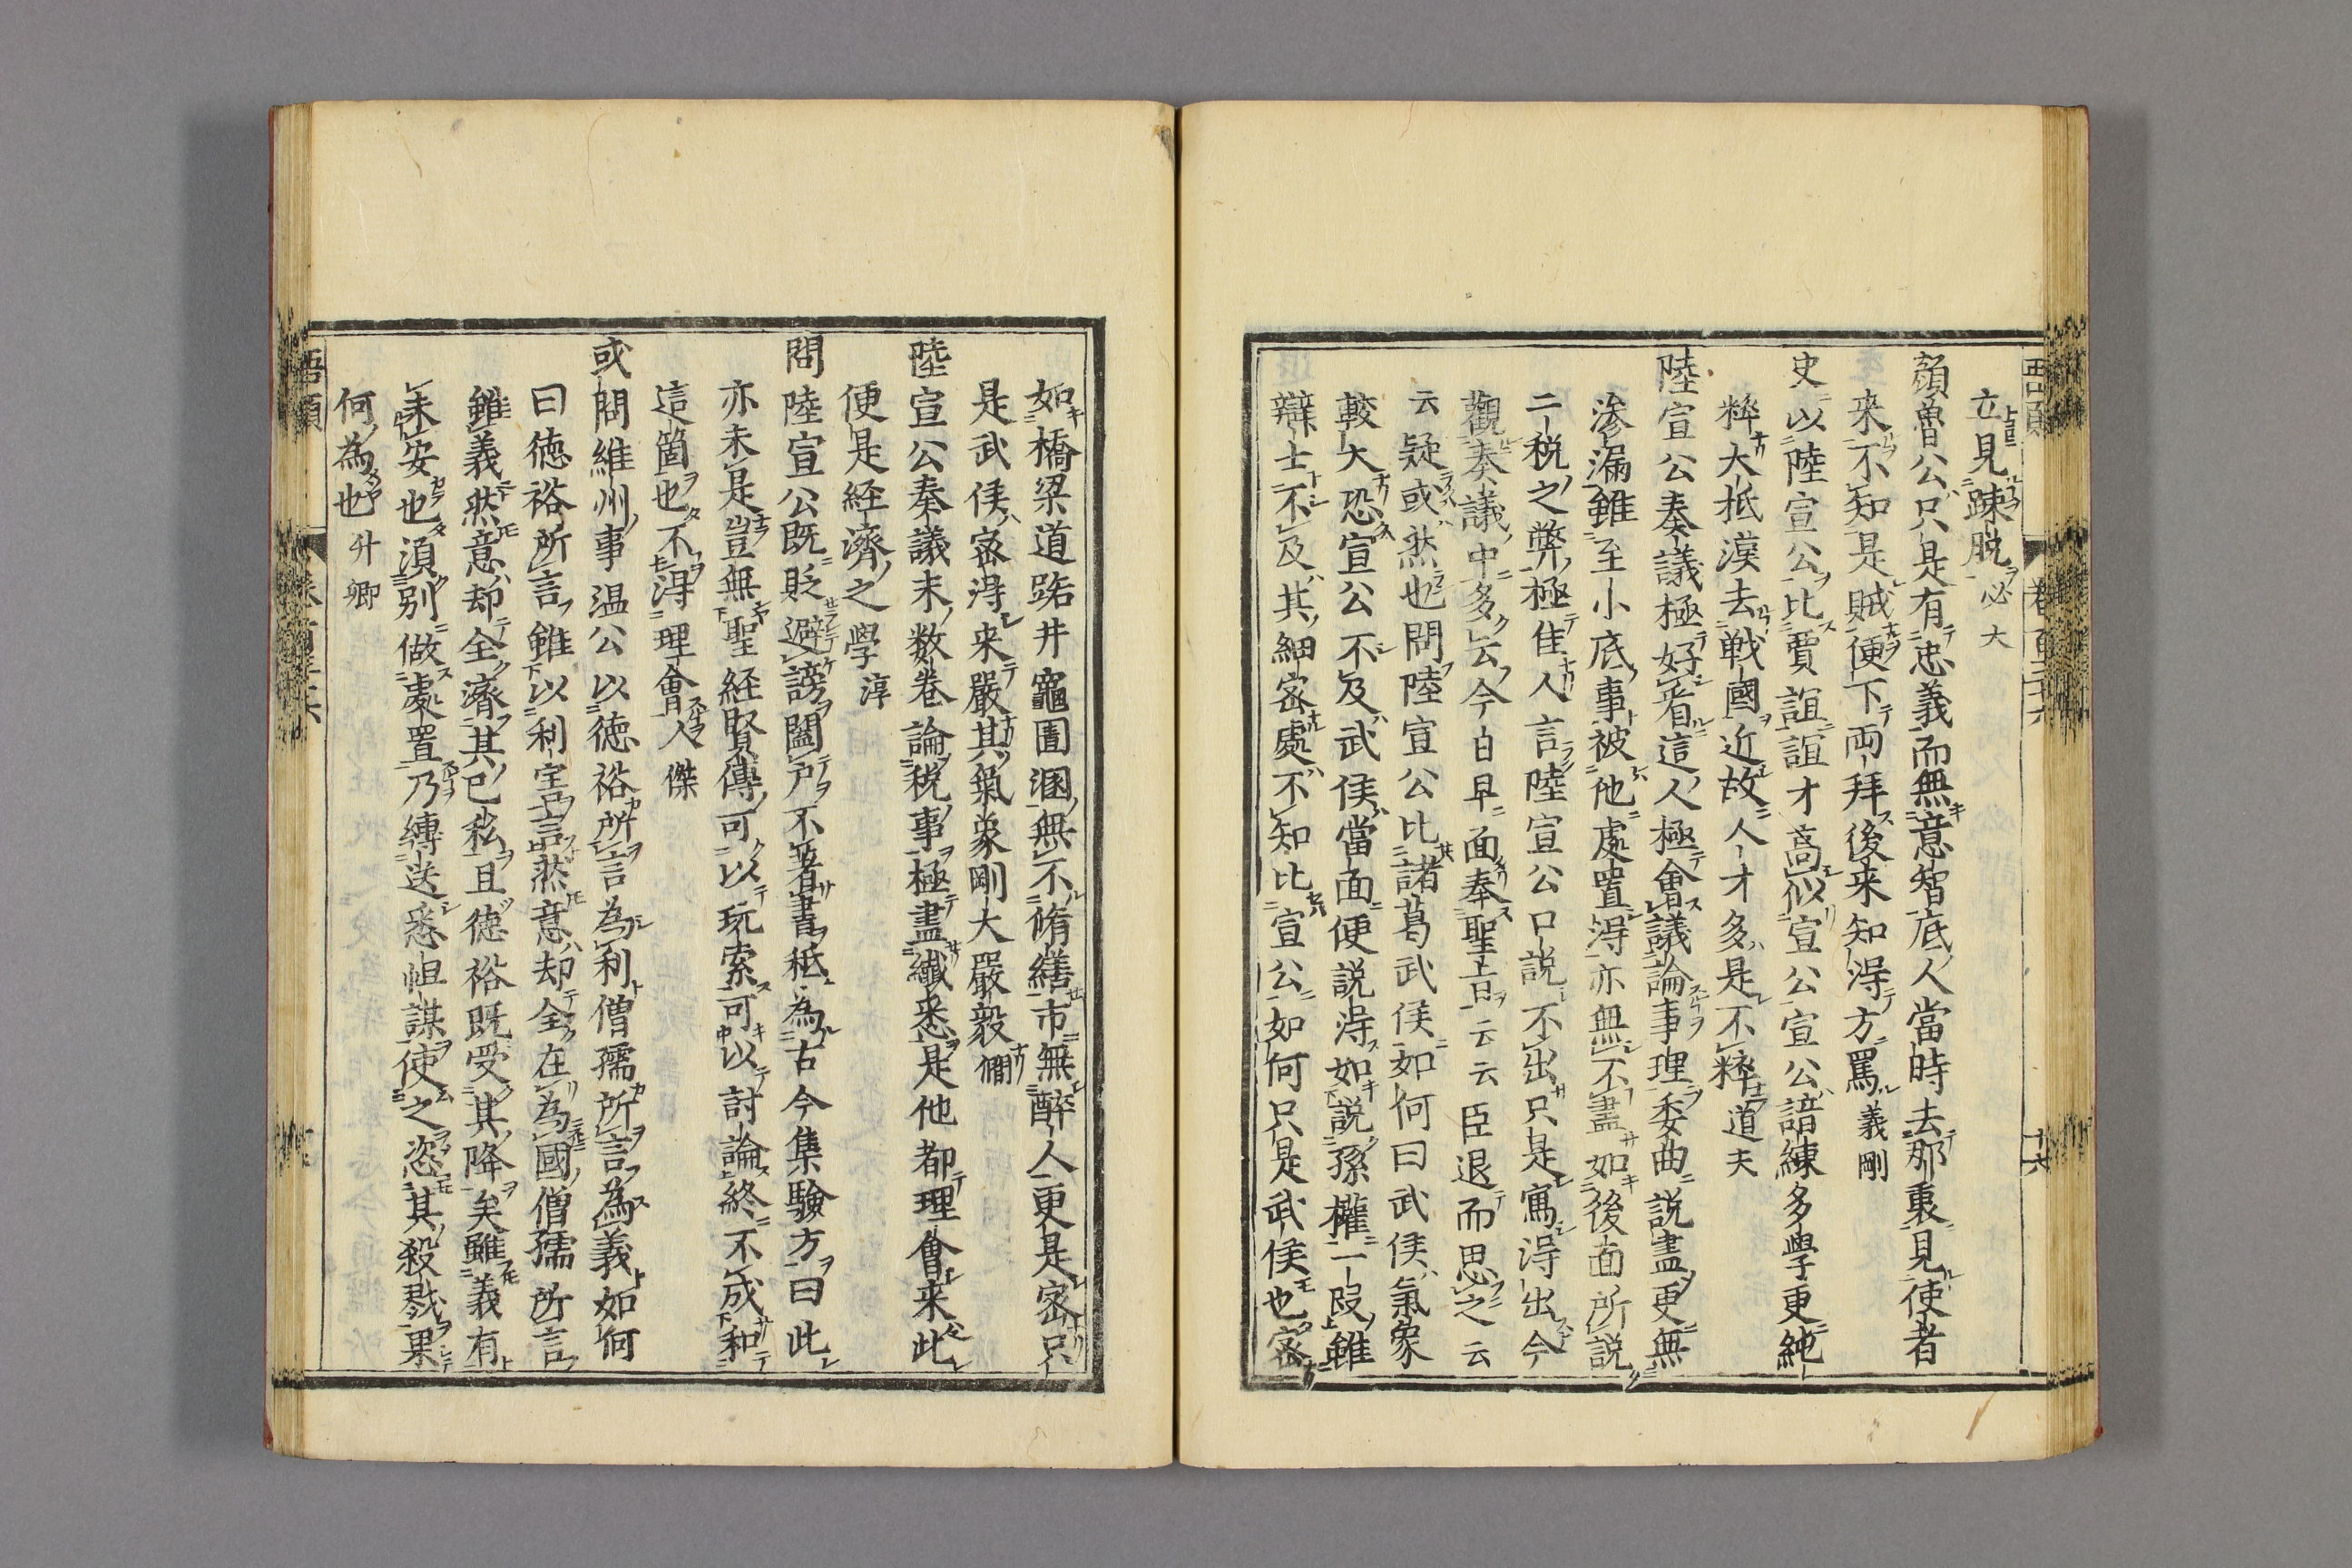 立見踈脱必大
顔魯公只是有忠義而無意智底人當時去那裏見使者
来不知是賊便下両拜後来知得方罵義剛
史以陸宣公比賈誼誼才高似宣公宣公諳練多學更純
粹大抵漢去戦國近故人才多是不粹道夫
陸宣公奏議極好看這人極會議論事理委曲説盡更無
滲漏雖至小底事被他處置得亦無不盡如後面所説
二税之弊極佳人言陸宣公口説不出只是寫得出今
觀奏議中多云今日早面奉聖旨云云臣退而思之云
云疑或然也問陸宣公比諸葛武侯如何曰武侯氣象
較大恐宣公不及武侯當面便説得如説孫權一段雖
辯士不及其細密處不知比宣公如何只是武侯也密
如橋梁道路井竈圊溷無不脩繕市無醉人更是密只
是武侯密得来嚴其氣象剛大嚴毅僩
陸宣公奏議末數卷論税事極盡纎悉是他都理會来此
便是経濟之學淳
問陸宣公既貶避謗闔戸不著書秪為古今集驗方曰此
亦未是豈無聖経賢傳可以玩索可以討論終不成和
這箇也不得理會人傑
或問維州事温公以徳裕所言為利僧孺所言為義如何
曰徳裕所言雖以利害言然意却全在為國僧孺所言
雖義然意却全濟其己私且徳裕既受其降矣雖義有
未安也須別做處置乃縛送悉怛謀使之恣其殺戮果
何為也升卿
語類
卷百三十六
十六